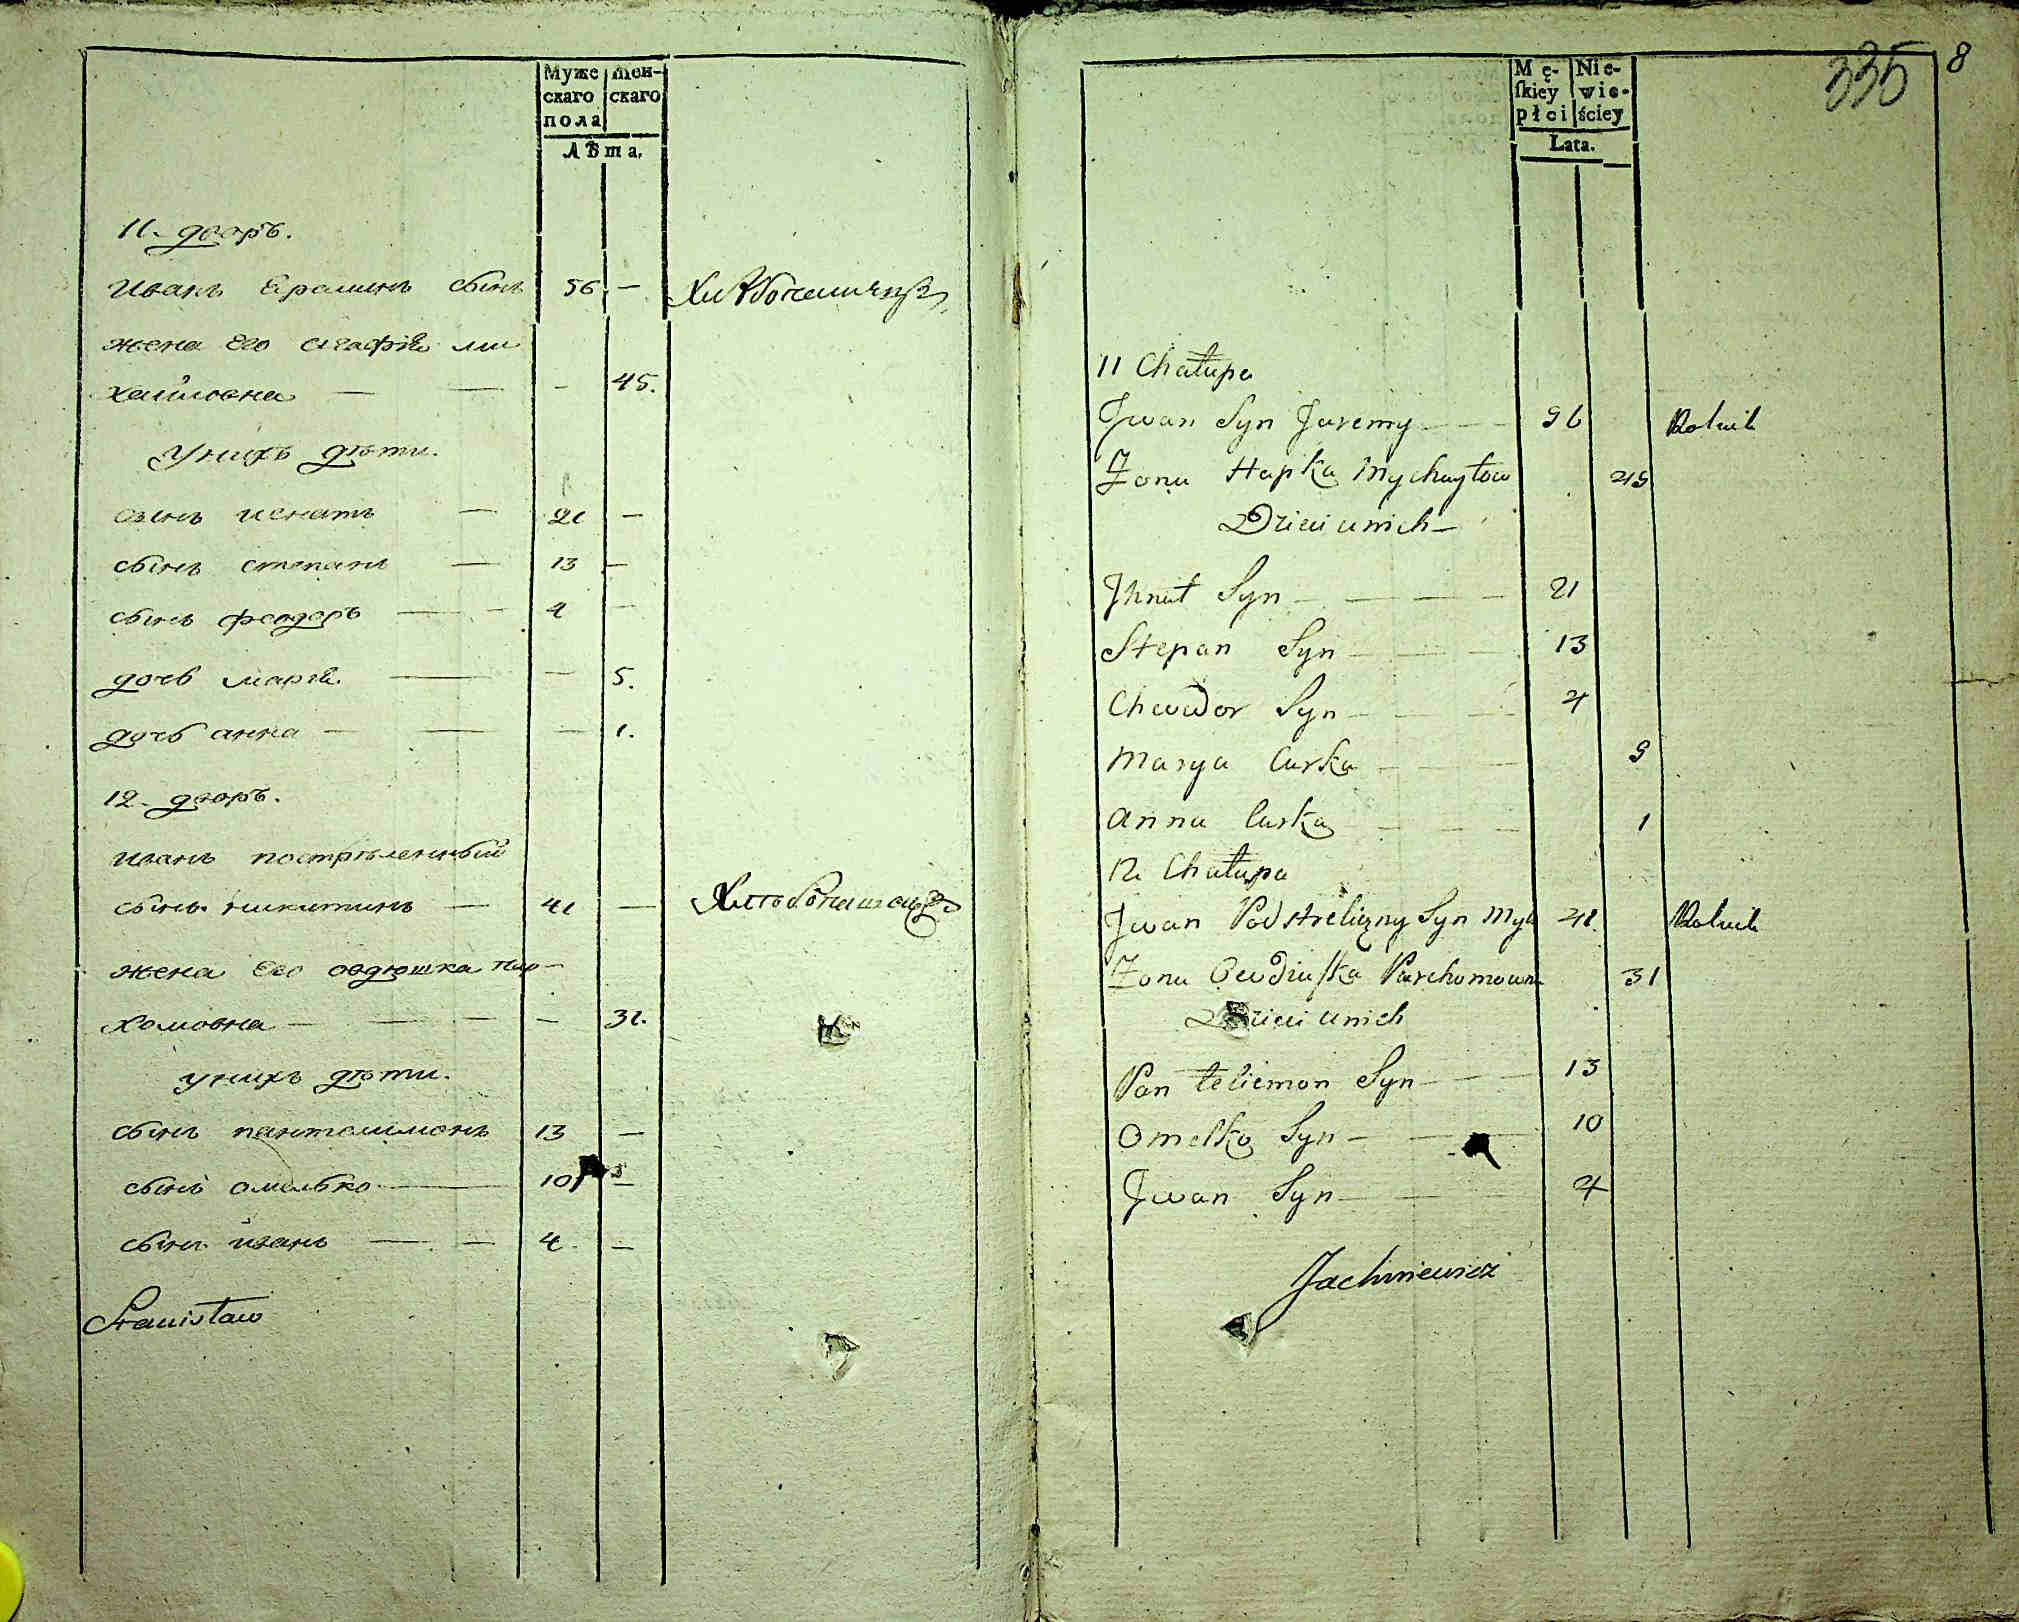 Муже
скаго
пола
Жен-
скаго
Лѣта.
11. дворъ.
Иванъ Ерминъ сынъ 56 — Хлѣбопашецъ
жена его агафiя ми
хайловна — — — 45.
У нихъ дѣти.
сынъ игнатъ — 21 —
сынъ степанъ — 13 —
сынъ феодоръ — 4 —
дочь марiя — — 5.
дочь анна — — — 1.
12. дворъ.
иванъ пострѣленный
сынъ никитинъ — 41 — Хлѣбопашецъ
жена его овдюшка пар-
хомовна — — — — 31.
у нихъ дѣти.
сынъ пантелимонъ 13 —
сынъ омелько — 10 —
сынъ иванъ — — 4. —
Stanisław
335 8
Mę-
ſkiey
płci
Nie-
wie-
ściey
Lata.
11 Chałupa
Jwan Syn Jaremy — — 56 Rolnik
Żona Hapka Mychayłow 45
Dzieci u nich —
Jhnat Syn — — — — 21
Stepan Syn — — — 13
Chwedor Syn — — — 4
Marya Curka — — — 5
Anna Curka — — — 1
12 Chałupa
Jwan Podstrelizny Syn Myk 41. Rolnik
Żona Owdiuſka Parchomowna 31
Dzieci u nich
Panteliemon Syn — — 13
Omelko Syn — — 10
Jwan Syn — — — 4
Jachniewicz